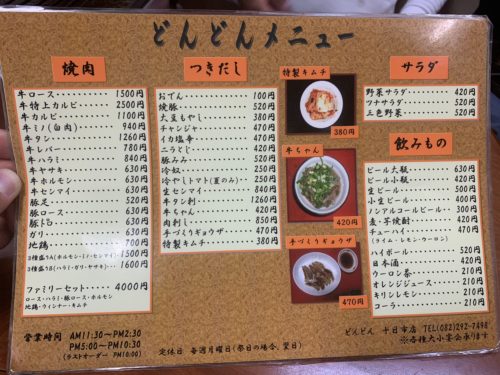 どんどんメニュー
焼肉
牛ロース 1500円
牛特上カルビ 2500円
牛カルビ 1100円
牛ミノ(白肉) 940円
牛タン 1260円
牛レバー 780円
牛ハラミ 840円
牛ヤサキ 630円
牛ホルモン 630円
牛センマイ 630円
豚足 520円
豚ロース 630円
豚トロ 630円
ガリ 630円
地鶏 700円
3種盛りA(ホルモン・ミノ・センマイ) 1500円
3種盛りB(ハラミ・ガリ・ヤサキ) 1600円
ファミリーセット 4000円
ロース・ハラミ・豚ロース・ホルモン
地鶏・ウィンナー・キムチ
つきだし
おでん 100円
焼豚 520円
大豆もやし 380円
チャンジャ 470円
イカ塩辛 470円
ニラどじ 420円
豚ミミ 520円
冷奴 250円
冷やしトマト(夏のみ) 250円
生センマイ 580円
牛タン刺 1260円
牛ちゃん 420円
肉刺し 850円
手づくりギョウザ 470円
特製キムチ 380円
特製キムチ
380円
牛ちゃん
420円
手づくりギョウザ
470円
サラダ
野菜サラダ 420円
ツナサラダ 520円
三色野菜 420円
飲みもの
ビール大瓶 630円
ビール小瓶 420円
生ビール 500円
小生ビール 400円
ノンアルコールビール 300円
麦・芋焼酎 420円
チューハイ 420円
(ライム・レモン・ウーロン)
ハイボール 520円
日本酒 420円
ウーロン茶 210円
オレンジジュース 210円
キリンレモン 210円
コーラ 210円
営業時間 AM11:30〜PM2:30
PM5:00〜PM10:30
(ラストオーダー PM10:00)
定休日 毎週月曜日(祭日の場合、翌日)
どんどん 十日市店 TEL(082)292-7498
※各種大小宴会承ります